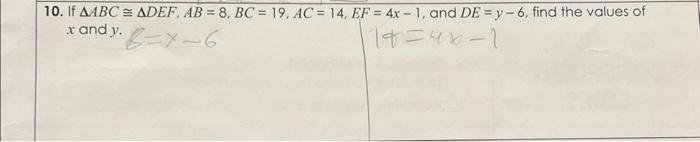 10. If ΔABC ≅ ΔDEF, AB = 8, BC = 19, AC = 14, EF = 4x – 1, and DE = y – 6, find the values of
x and y.
8=y-6
19=4x-1